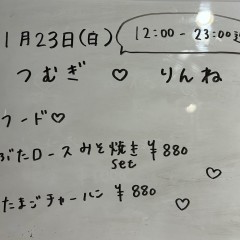 1月23日(日)
12:00-23:00
つむぎ ♡ りんね
フード♡
ぶたロース みそ焼き ¥880
set
たまごチャーハン ¥880
♡
♡